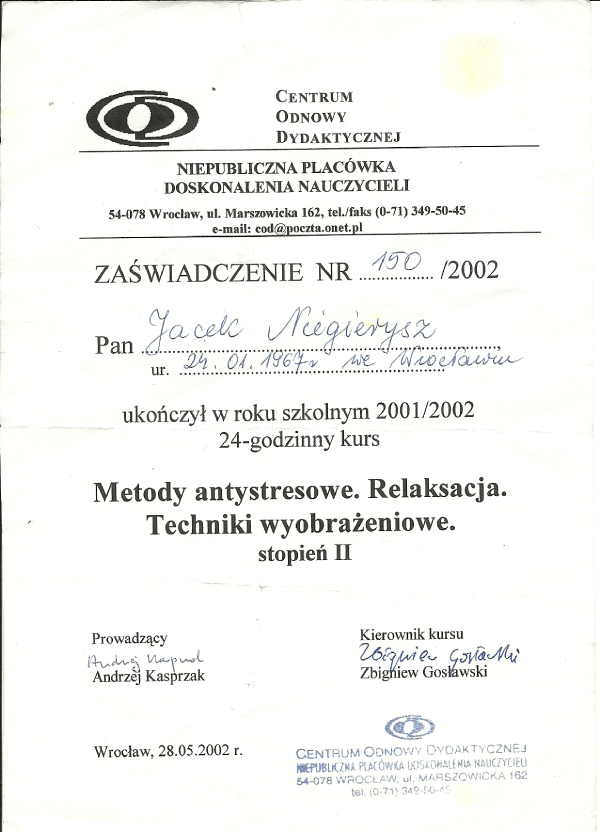 CENTRUM
ODNOWY
DYDAKTYCZNEJ
NIEPUBLICZNA PLACÓWKA
DOSKONALENIA NAUCZYCIELI
54-078 Wrocław, ul. Marszowicka 162, tel./faks (0-71) 349-50-45
e-mail: cod@poczta.onet.pl
ZAŚWIADCZENIE NR 150 /2002
Pan Jacek Niegierysz
ur. 24.01.1967r we Wrocławiu
ukończył w roku szkolnym 2001/2002
24-godzinny kurs
Metody antystresowe. Relaksacja.
Techniki wyobrażeniowe.
stopień II
Prowadzący
Andrzej
Andrzej Kasprzak
Kierownik kursu
Zbigniew Gosławski
Zbigniew Gosławski
Wrocław, 28.05.2002 r.
CENTRUM ODNOWY DYDAKTYCZNEJ
NIEPUBLICZNA PLACÓWKA DOSKONALENIA NAUCZYCIELI
54-078 WROCŁAW, ul. MARSZOWICKA 162
tel. (0-71) 349-50-45